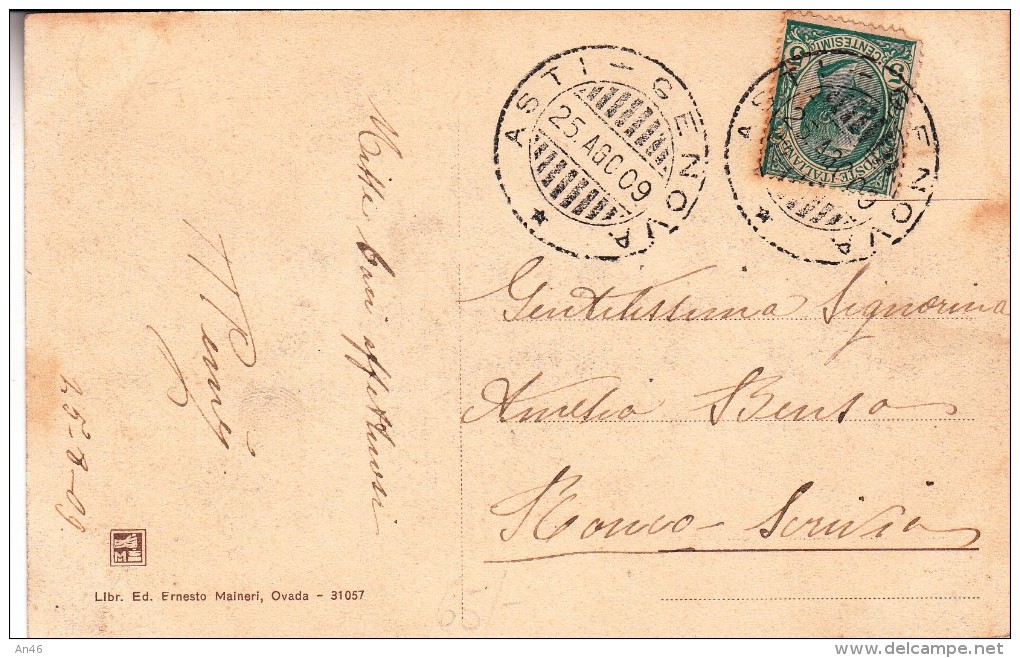 ASTI - GENOVA
25 AGO 09
ASTI - GENOVA
CENTESIMI
5 5
POSTE ITALIANE
Mille baci affettuosi
25-8-09
Gentilissima Signorina
Amelia Benso
Ronco-Scrivia
M
Libr. Ed. Ernesto Maineri, Ovada - 31057
65/-
An46
delcampe.net